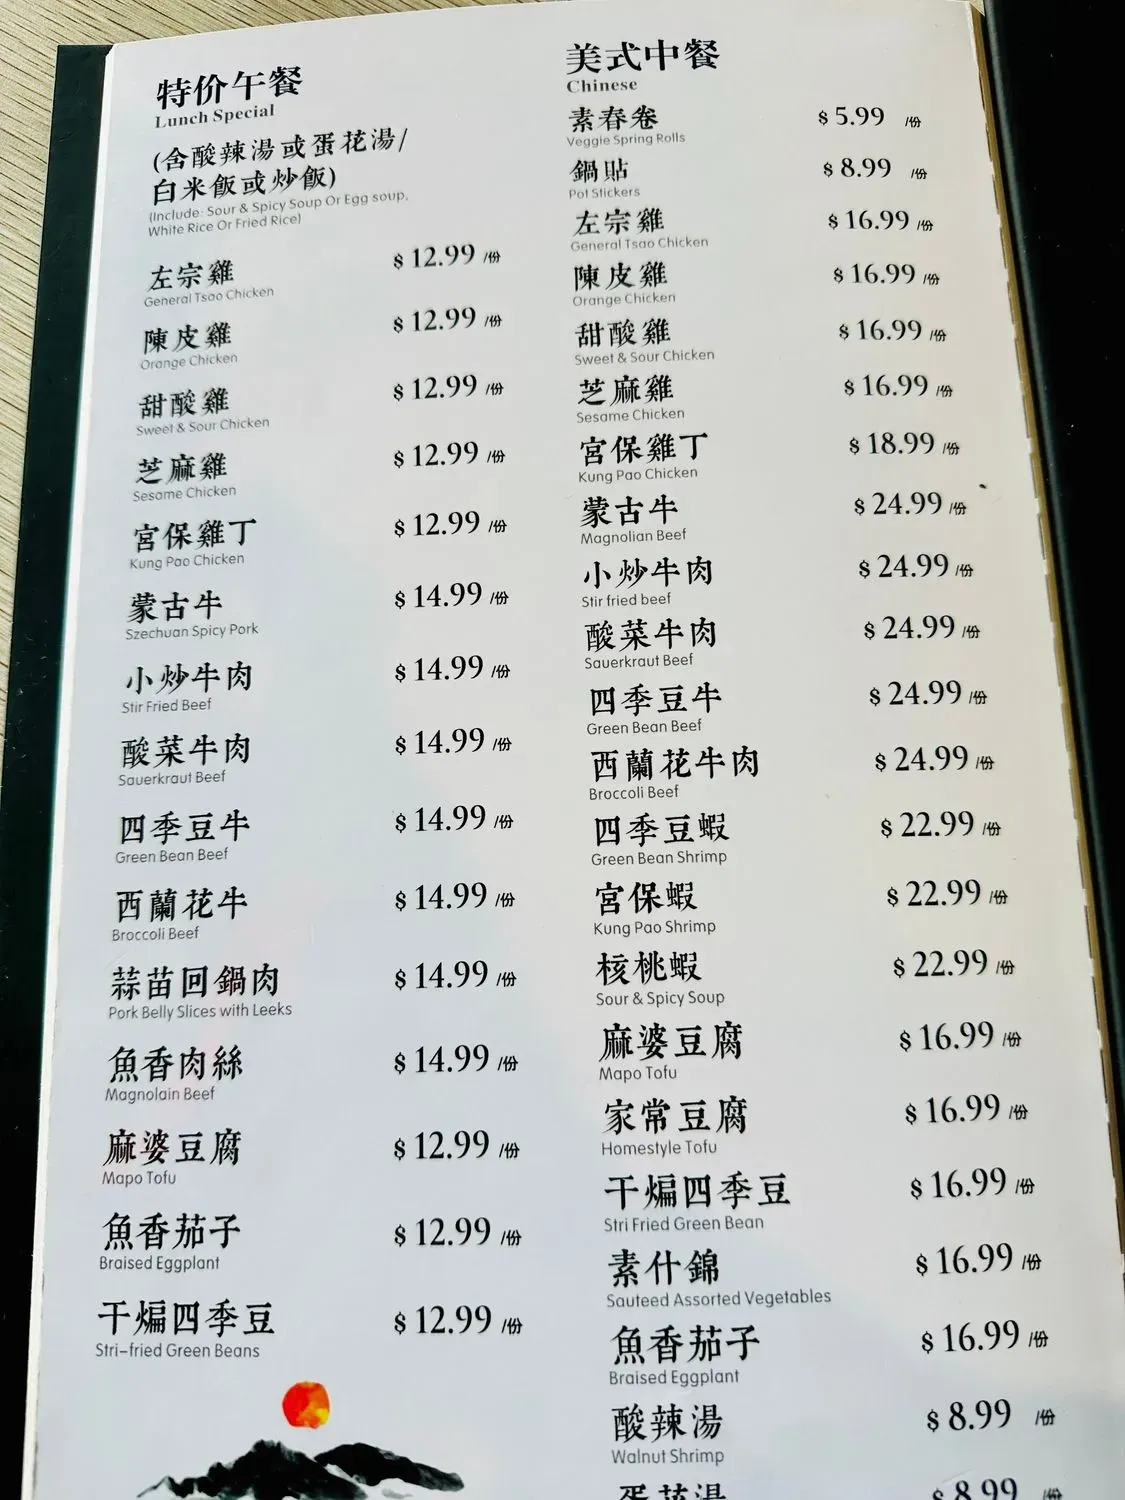 特价午餐
Lunch Special
(含酸辣湯或蛋花湯/
白米飯或炒飯)
(Include: Sour & Spicy Soup Or Egg soup,
White Rice Or Fried Rice)
左宗雞 $ 12.99 /份
General Tsao Chicken
陳皮雞 $ 12.99 /份
Orange Chicken
甜酸雞 $ 12.99 /份
Sweet & Sour Chicken
芝麻雞 $ 12.99 /份
Sesame Chicken
宮保雞丁 $ 12.99 /份
Kung Pao Chicken
蒙古牛 $ 14.99 /份
Szechuan Spicy Pork
小炒牛肉 $ 14.99 /份
Stir Fried Beef
酸菜牛肉 $ 14.99 /份
Sauerkraut Beef
四季豆牛 $ 14.99 /份
Green Bean Beef
西蘭花牛 $ 14.99 /份
Broccoli Beef
蒜苗回鍋肉 $ 14.99 /份
Pork Belly Slices with Leeks
魚香肉絲 $ 14.99 /份
Magnolain Beef
麻婆豆腐 $ 12.99 /份
Mapo Tofu
魚香茄子 $ 12.99 /份
Braised Eggplant
干煸四季豆 $ 12.99 /份
Stri-fried Green Beans
美式中餐
Chinese
素春卷 $ 5.99 /份
Veggie Spring Rolls
鍋貼 $ 8.99 /份
Pot Stickers
左宗雞 $ 16.99 /份
General Tsao Chicken
陳皮雞 $ 16.99 /份
Orange Chicken
甜酸雞 $ 16.99 /份
Sweet & Sour Chicken
芝麻雞 $ 16.99 /份
Sesame Chicken
宮保雞丁 $ 18.99 /份
Kung Pao Chicken
蒙古牛 $ 24.99 /份
Magnolian Beef
小炒牛肉 $ 24.99 /份
Stir fried beef
酸菜牛肉 $ 24.99 /份
Sauerkraut Beef
四季豆牛 $ 24.99 /份
Green Bean Beef
西蘭花牛肉 $ 24.99 /份
Broccoli Beef
四季豆蝦 $ 22.99 /份
Green Bean Shrimp
宮保蝦 $ 22.99 /份
Kung Pao Shrimp
核桃蝦 $ 22.99 /份
Sour & Spicy Soup
麻婆豆腐 $ 16.99 /份
Mapo Tofu
家常豆腐 $ 16.99 /份
Homestyle Tofu
干煸四季豆 $ 16.99 /份
Stri Fried Green Bean
素什錦 $ 16.99 /份
Sauteed Assorted Vegetables
魚香茄子 $ 16.99 /份
Braised Eggplant
酸辣湯 $ 8.99 /份
Walnut Shrimp
蛋花湯 $ 8.99 /份